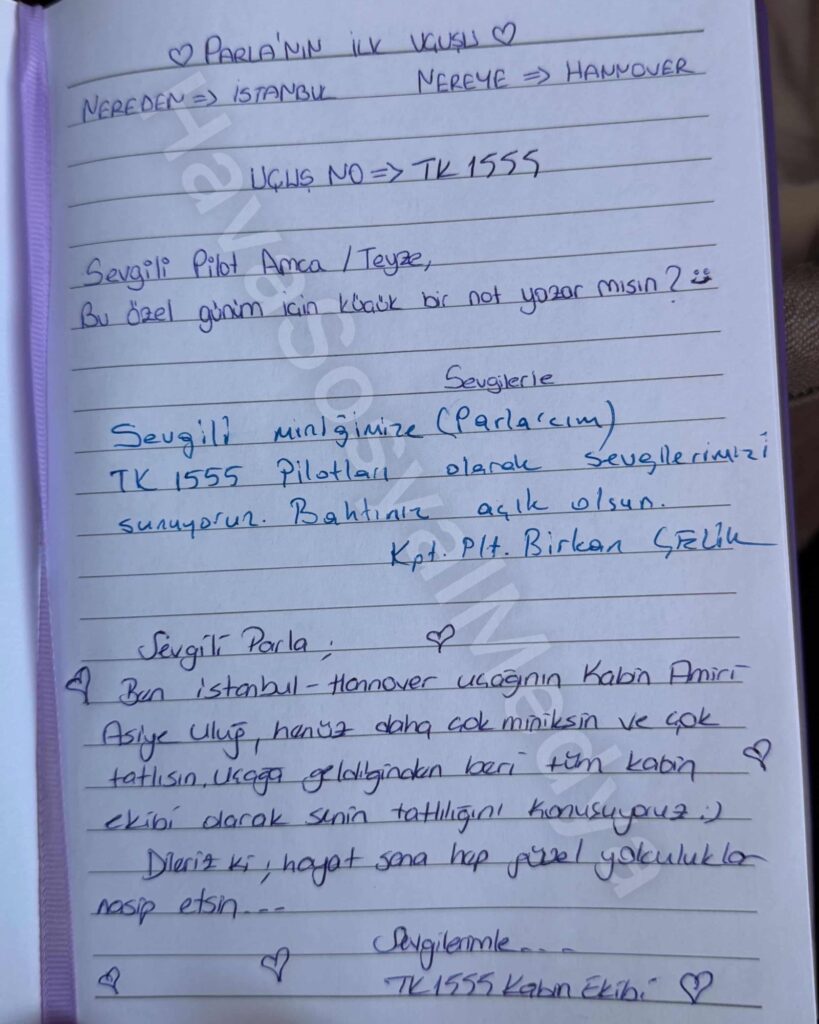 ♡ PARLA'NIN İLK UÇUŞU ♡
NEREDEN => İSTANBUL NEREYE => HANNOVER
UÇUŞ NO => TK 1555
Sevgili Pilot Amca / Teyze,
Bu özel günüm için küçük bir not yazar mısın? :)
Sevgilerle
Sevgili minliğimize (Parla'cım)
TK 1555 Pilotları olarak sevgilerimizi
sunuyoruz. Bahtınız açık olsun.
Kpt. Plt. Birkan ÇELİK
Sevgili Parla; ♡
♡ Ben istanbul - Hannover uçağının Kabin Amiri
Asiye Uluğ, henüz daha çok miniksin ve çok
tatlısın, uçağa geldiğinden beri tüm kabin ♡
ekibi olarak senin tatlılığını konuşuyoruz :)
Dileriz ki; hayat sana hep güzel yolculuklar
nasip etsin...
Sevgilerimle....
♡ ♡ TK1555 Kabin Ekibi ♡
HavaSosyalMedya